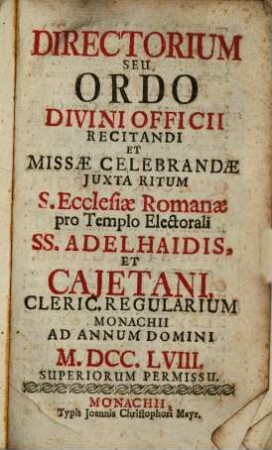 DIRECTORIUM
SEU
ORDO
DIVINI OFFICII
RECITANDI
ET
MISSÆ CELEBRANDÆ
JUXTA RITUM
S. Ecclesiæ Romanæ
pro Templo Electorali
SS. ADELHAIDIS,
ET
CAJETANI,
CLERIC. REGULARIUM
MONACHII
AD ANNUM DOMINI
M. DCC. LVIII.
SUPERIORUM PERMISSU.
MONACHII
Typis Joannis Christophori Mayr.